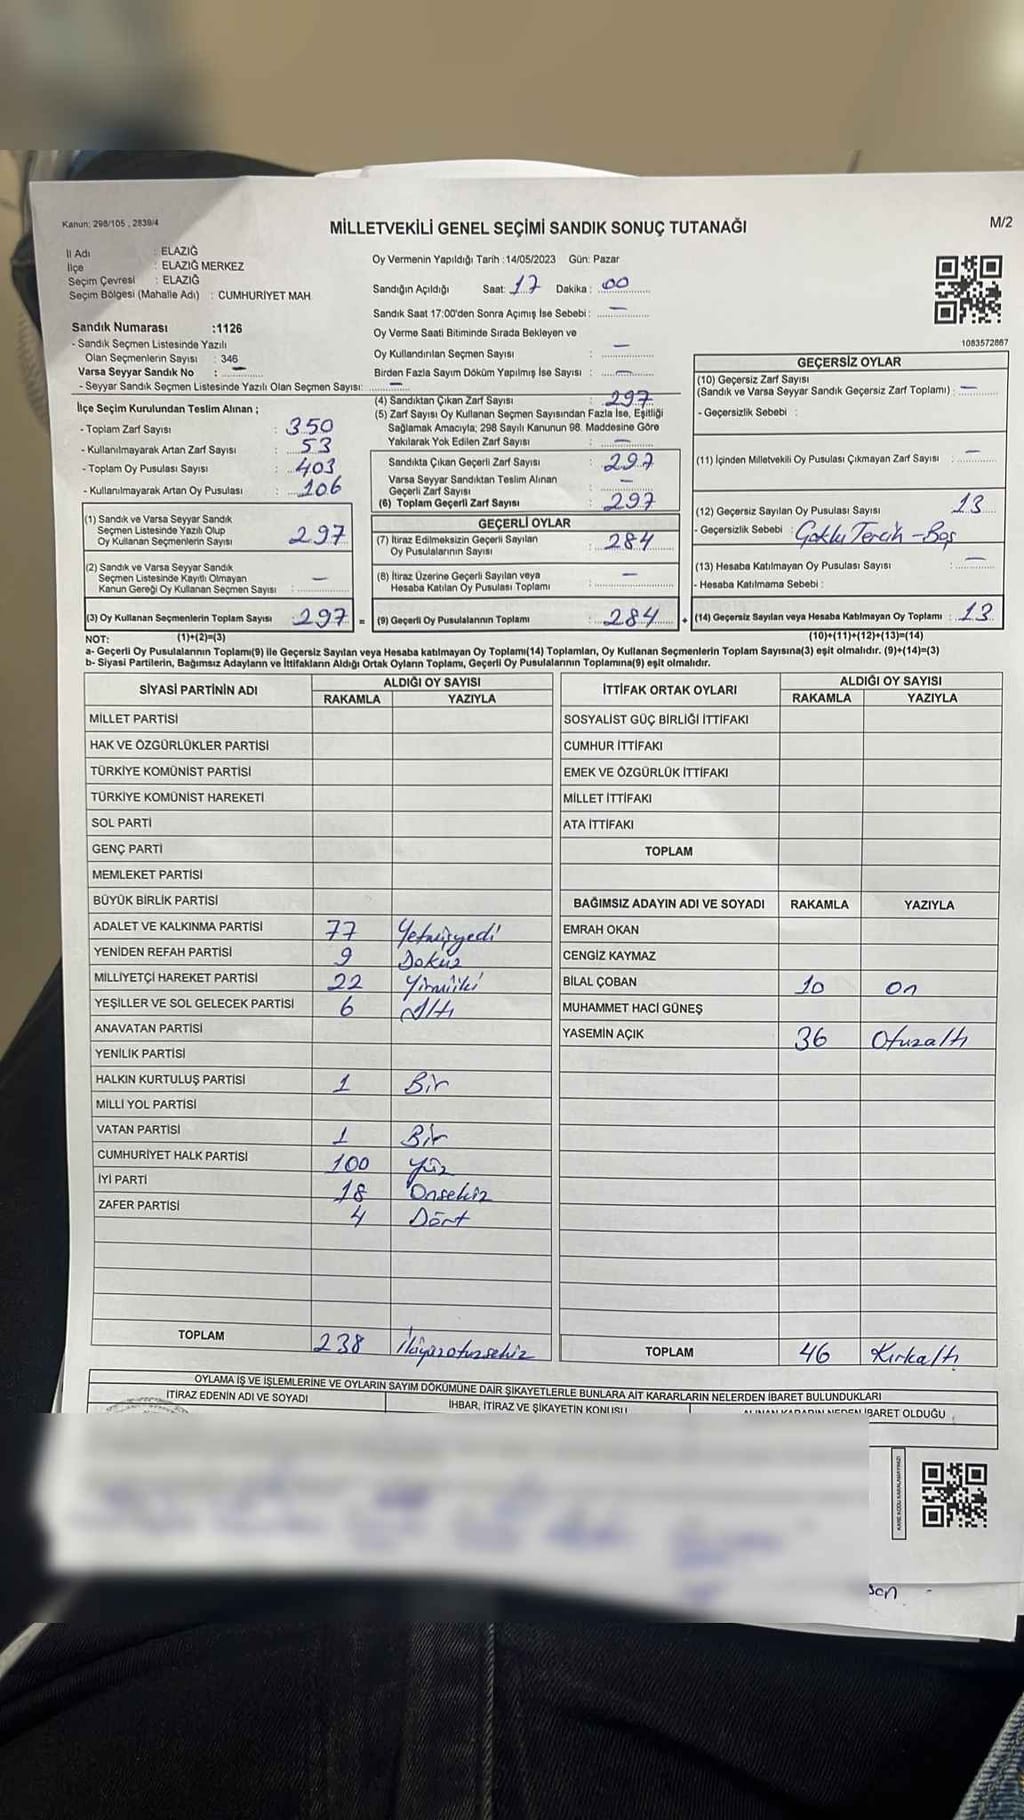 Kanun: 298/105 , 2839/4
MİLLETVEKİLİ GENEL SEÇİMİ SANDIK SONUÇ TUTANAĞI
M/2
İl Adı : ELAZIĞ
İlçe : ELAZIĞ MERKEZ
Seçim Çevresi : ELAZIĞ
Seçim Bölgesi (Mahalle Adı) : CUMHURİYET MAH
Sandık Numarası :1126
- Sandık Seçmen Listesinde Yazılı
Olan Seçmenlerin Sayısı : 346
Varsa Seyyar Sandık No : —
- Seyyar Sandık Seçmen Listesinde Yazılı Olan Seçmen Sayısı: —
İlçe Seçim Kurulundan Teslim Alınan ;
- Toplam Zarf Sayısı : 350
- Kullanılmayarak Artan Zarf Sayısı : 53
- Toplam Oy Pusulası Sayısı : 403
- Kullanılmayarak Artan Oy Pusulası : 106
(1) Sandık ve Varsa Seyyar Sandık
Seçmen Listesinde Yazılı Olup
Oy Kullanan Seçmenlerin Sayısı : 297
(2) Sandık ve Varsa Seyyar Sandık
Seçmen Listesinde Kayıtlı Olmayan
Kanun Gereği Oy Kullanan Seçmen Sayısı : —
(3) Oy Kullanan Seçmenlerin Toplam Sayısı : 297 =
Oy Vermenin Yapıldığı Tarih :14/05/2023 Gün: Pazar
Sandığın Açıldığı Saat: 17 Dakika : 00
Sandık Saat 17:00'den Sonra Açımış İse Sebebi : —
Oy Verme Saati Bitiminde Sırada Bekleyen ve
Oy Kullandırılan Seçmen Sayısı : —
Birden Fazla Sayım Döküm Yapılmış İse Sayısı : —
(4) Sandıktan Çıkan Zarf Sayısı : 297
(5) Zarf Sayısı Oy Kullanan Seçmen Sayısından Fazla İse, Eşitliği
Sağlamak Amacıyla; 298 Sayılı Kanunun 98. Maddesine Göre
Yakılarak Yok Edilen Zarf Sayısı : —
Sandıkta Çıkan Geçerli Zarf Sayısı : 297
Varsa Seyyar Sandıktan Teslim Alınan
Geçerli Zarf Sayısı : —
(6) Toplam Geçerli Zarf Sayısı : 297
GEÇERLİ OYLAR
(7) İtiraz Edilmeksizin Geçerli Sayılan
Oy Pusulalarının Sayısı : 284
(8) İtiraz Üzerine Geçerli Sayılan veya
Hesaba Katılan Oy Pusulası Toplamı : —
(9) Geçerli Oy Pusulalarının Toplamı : 284 +
1083572867
GEÇERSİZ OYLAR
(10) Geçersiz Zarf Sayısı
(Sandık ve Varsa Seyyar Sandık Geçersiz Zarf Toplamı) : —
- Geçersizlik Sebebi :
(11) İçinden Milletvekili Oy Pusulası Çıkmayan Zarf Sayısı : —
(12) Geçersiz Sayılan Oy Pusulası Sayısı : 13
- Geçersizlik Sebebi : Çoklu Tercih - Boş
(13) Hesaba Katılmayan Oy Pusulası Sayısı : —
- Hesaba Katılmama Sebebi :
(14) Geçersiz Sayılan veya Hesaba Katılmayan Oy Toplamı : 13
NOT: (1)+(2)=(3) (10)+(11)+(12)+(13)=(14)
a- Geçerli Oy Pusulalarının Toplamı(9) ile Geçersiz Sayılan veya Hesaba katılmayan Oy Toplamı(14) Toplamları, Oy Kullanan Seçmenlerin Toplam Sayısına(3) eşit olmalıdır. (9)+(14)=(3)
b- Siyasi Partilerin, Bağımsız Adayların ve İttifakların Aldığı Ortak Oyların Toplamı, Geçerli Oy Pusulalarının Toplamına(9) eşit olmalıdır.
SİYASİ PARTİNİN ADI ALDIĞI OY SAYISI
RAKAMLA YAZIYLA
MİLLET PARTİSİ
HAK VE ÖZGÜRLÜKLER PARTİSİ
TÜRKİYE KOMÜNİST PARTİSİ
TÜRKİYE KOMÜNİST HAREKETİ
SOL PARTİ
GENÇ PARTİ
MEMLEKET PARTİSİ
BÜYÜK BİRLİK PARTİSİ
ADALET VE KALKINMA PARTİSİ 77 Yetmişyedi
YENİDEN REFAH PARTİSİ 9 Dokuz
MİLLİYETÇİ HAREKET PARTİSİ 22 Yirmiiki
YEŞİLLER VE SOL GELECEK PARTİSİ 6 Altı
ANAVATAN PARTİSİ
YENİLİK PARTİSİ
HALKIN KURTULUŞ PARTİSİ 1 Bir
MİLLİ YOL PARTİSİ
VATAN PARTİSİ 1 Bir
CUMHURİYET HALK PARTİSİ 100 Yüz
İYİ PARTİ 18 Onsekiz
ZAFER PARTİSİ 4 Dört
TOPLAM 238 İkiyüzotuzsekiz
İTTİFAK ORTAK OYLARI ALDIĞI OY SAYISI
RAKAMLA YAZIYLA
SOSYALİST GÜÇ BİRLİĞİ İTTİFAKI
CUMHUR İTTİFAKI
EMEK VE ÖZGÜRLÜK İTTİFAKI
MİLLET İTTİFAKI
ATA İTTİFAKI
TOPLAM
BAĞIMSIZ ADAYIN ADI VE SOYADI RAKAMLA YAZIYLA
EMRAH OKAN
CENGİZ KAYMAZ
BİLAL ÇOBAN 10 On
MUHAMMET HACİ GÜNEŞ
YASEMİN AÇIK 36 Otuzaltı
TOPLAM 46 Kırkaltı
OYLAMA İŞ VE İŞLEMLERİNE VE OYLARIN SAYIM DÖKÜMÜNE DAİR ŞİKAYETLERLE BUNLARA AİT KARARLARIN NELERDEN İBARET BULUNDUKLARI
İTİRAZ EDENİN ADI VE SOYADI
İHBAR, İTİRAZ VE ŞİKAYETİN KONUSU
ALINAN KARARIN NEDEN İBARET OLDUĞU